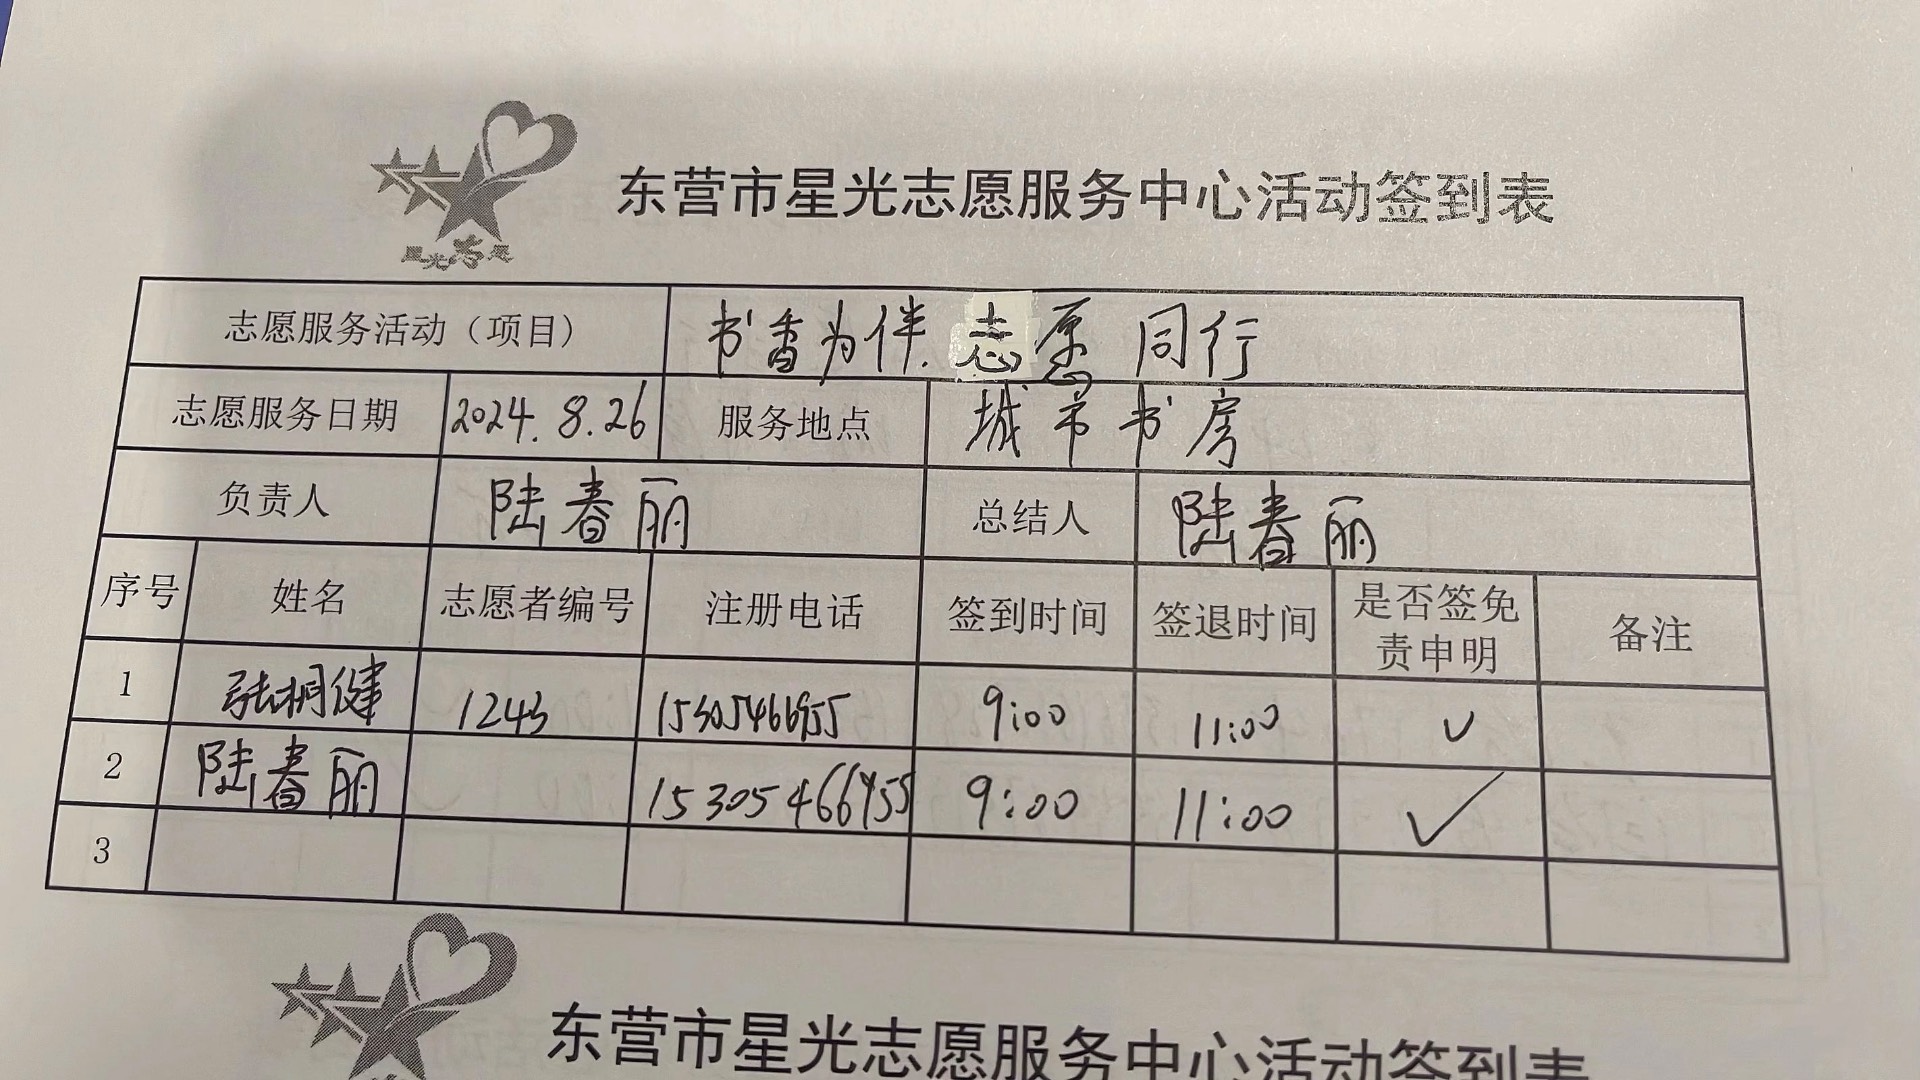 星光志愿
东营市星光志愿服务中心活动签到表
志愿服务活动（项目） 书香为伴.志愿同行
志愿服务日期 2024.8.26 服务地点 城市书房
负责人 陆春丽 总结人 陆春丽
序号 姓名 志愿者编号 注册电话 签到时间 签退时间 是否签免责申明 备注
1 张桐健 1243 15305466955 9:00 11:00 ✓
2 陆春丽 15305466955 9:00 11:00 ✓
3
东营市星光志愿服务中心活动签到表